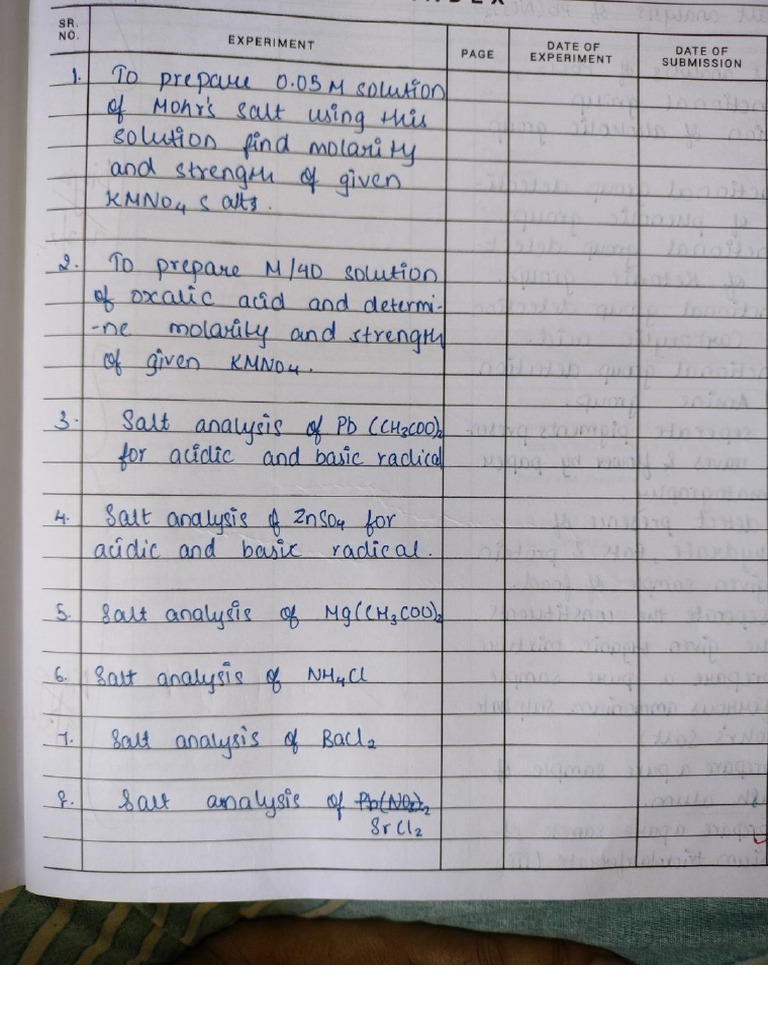 INDEX
SR. NO.
EXPERIMENT
PAGE
DATE OF EXPERIMENT
DATE OF SUBMISSION
1. To prepare 0.05 M solution
of Mohr's salt using this
solution find molarity
and strength of given
KMNO4 salts.
2. To prepare M/40 solution
of oxalic acid and determi-
-ne molarity and strength
of given KMNO4.
3. Salt analysis of Pb (CH3COO)2
for acidic and basic radical
4. Salt analysis of ZnSO4 for
acidic and basic radical.
5. Salt analysis of Mg(CH3COO)2
6. Salt analysis of NH4Cl
7. Salt analysis of BaCl2
8. Salt analysis of Pb(NO3)2
SrCl2